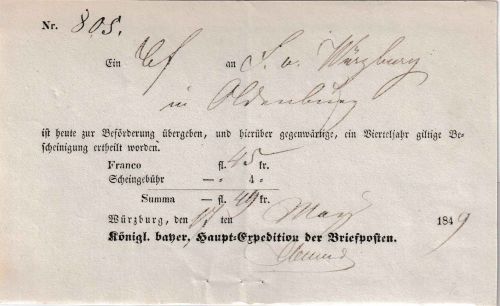 Nr. 805.
Ein Bf an S. v. Würzburg
in Oldenburg
ist heute zur Beförderung übergeben, und hierüber gegenwärtige, ein Vierteljahr giltige Be-
scheinigung ertheilt worden.
Franco fl. 45 kr.
Scheingebühr — „ 4 „
Summa — fl. 49 kr.
Würzburg, den 17 ten May 1849
Königl. bayer. Haupt-Expedition der Briefposten.